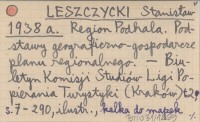 LESZCZYCKI Stanisław
1938 a. Region Podhala. Pod-
stawy geograficzno-gospodarcze
planu regionalnego. – Biu-
letyn Komisji Studiów Ligi Po-
pierania Turystyki (Kraków) t.2,
s. 7 - 290, ilustr., kalka do mapek